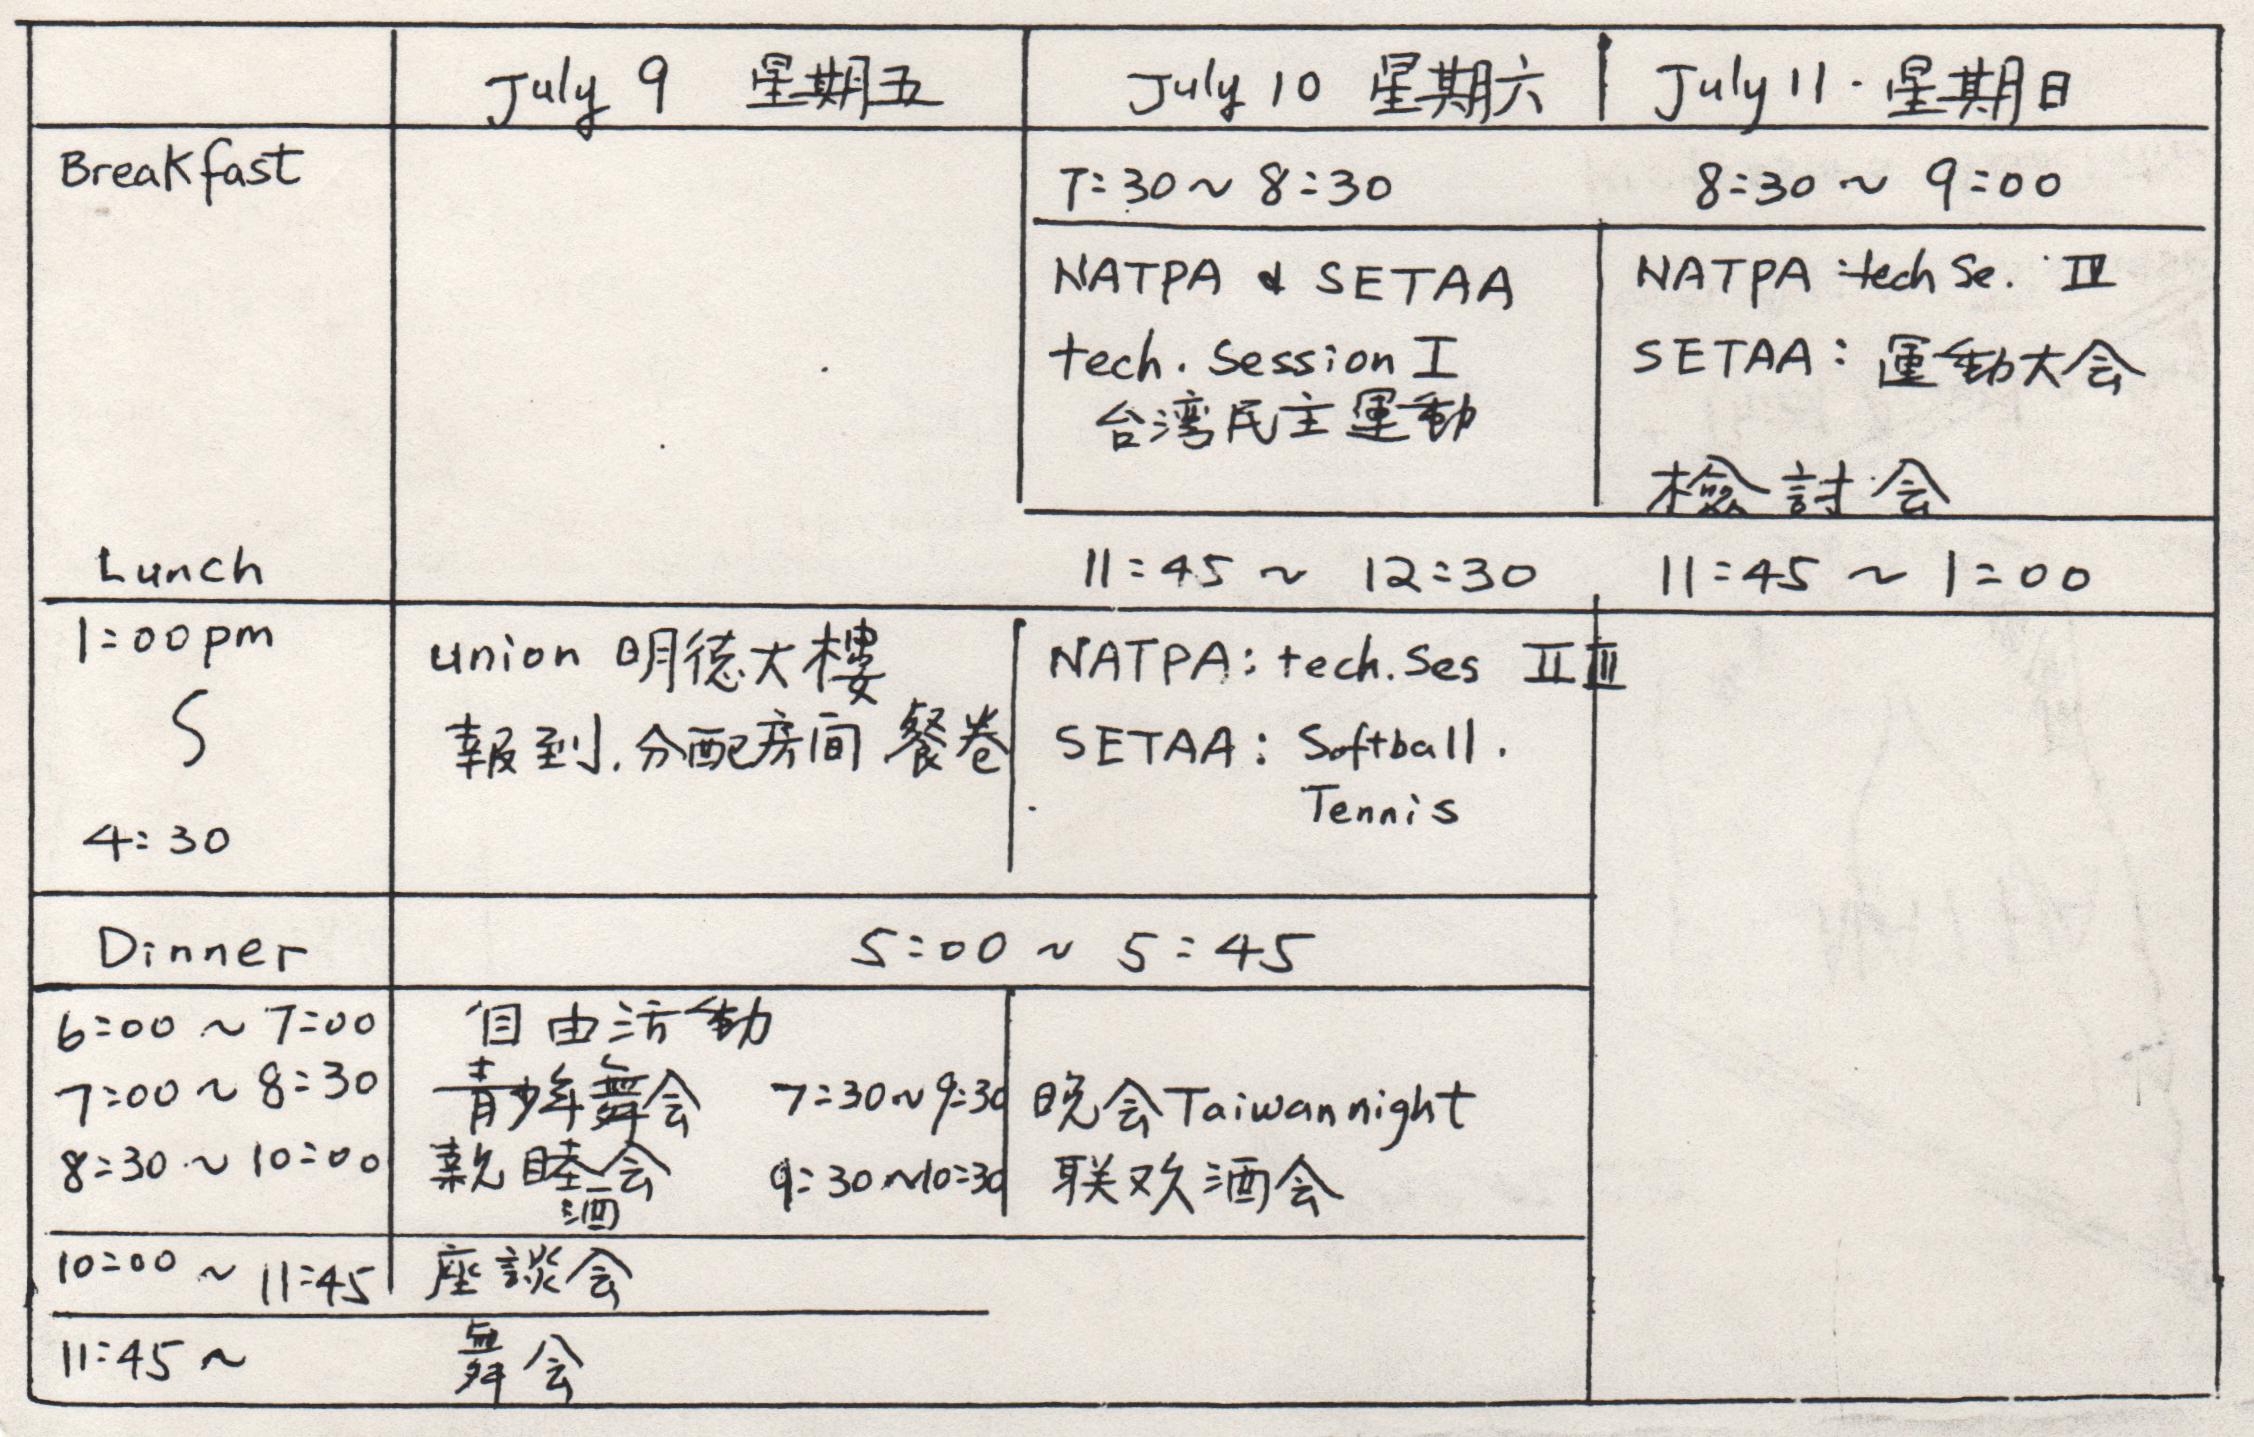 July 9 星期五 July 10 星期六 July 11 · 星期日
Breakfast 7:30~8:30 8:30~9:00
NATPA & SETAA NATPA :tech Se. IV
tech. Session I SETAA: 運動大会
台湾民主運動
檢討会
Lunch 11:45~12:30 11:45~1:00
1:00pm union 明德大樓 NATPA: tech. Ses II III
報到.分配房间 餐卷 SETAA: Softball.
Tennis
4:30
Dinner 5:00~5:45
6:00~7:00 自由活動
7:00~8:30 青少年舞会 7:30~9:30 晚会Taiwan night
8:30~10:00 親睦会 9:30~10:30 联欢酒会
酒
10:00~11:45 座談会
11:45~ 舞会